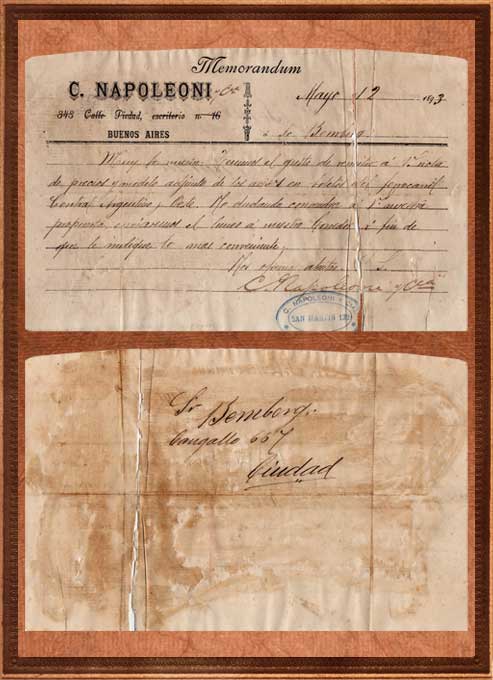 Memorandum
C. NAPOLEONI y Ca
343 Calle Piedad, escritorio n. 16
BUENOS AIRES
Mayo 12 93
á Sr Bemberg
Muy Sr nuestro: Tenemos el gusto de remitir á Vd nota
de precios y modelo adjunto de los avisos en boletos del ferrocarril
Central Argentino y Oeste. No dudando
propuesta, enviaremos el lunes á nuestro Corredor á fin de
que le indique lo mas conveniente,
C. Napoleoni y Cia
C. NAPOLEONI Y CIA
SAN MARTIN 132
Sr Bemberg.
Cangallo 667
Ciudad